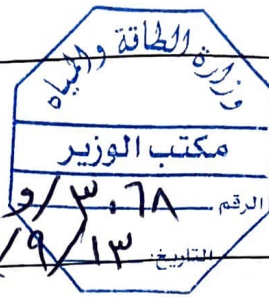 وزارة الطاقة والمياه
مكتب الوزير
الرقم ٣٠٦٨/و
التاريخ: ١٣/٩/